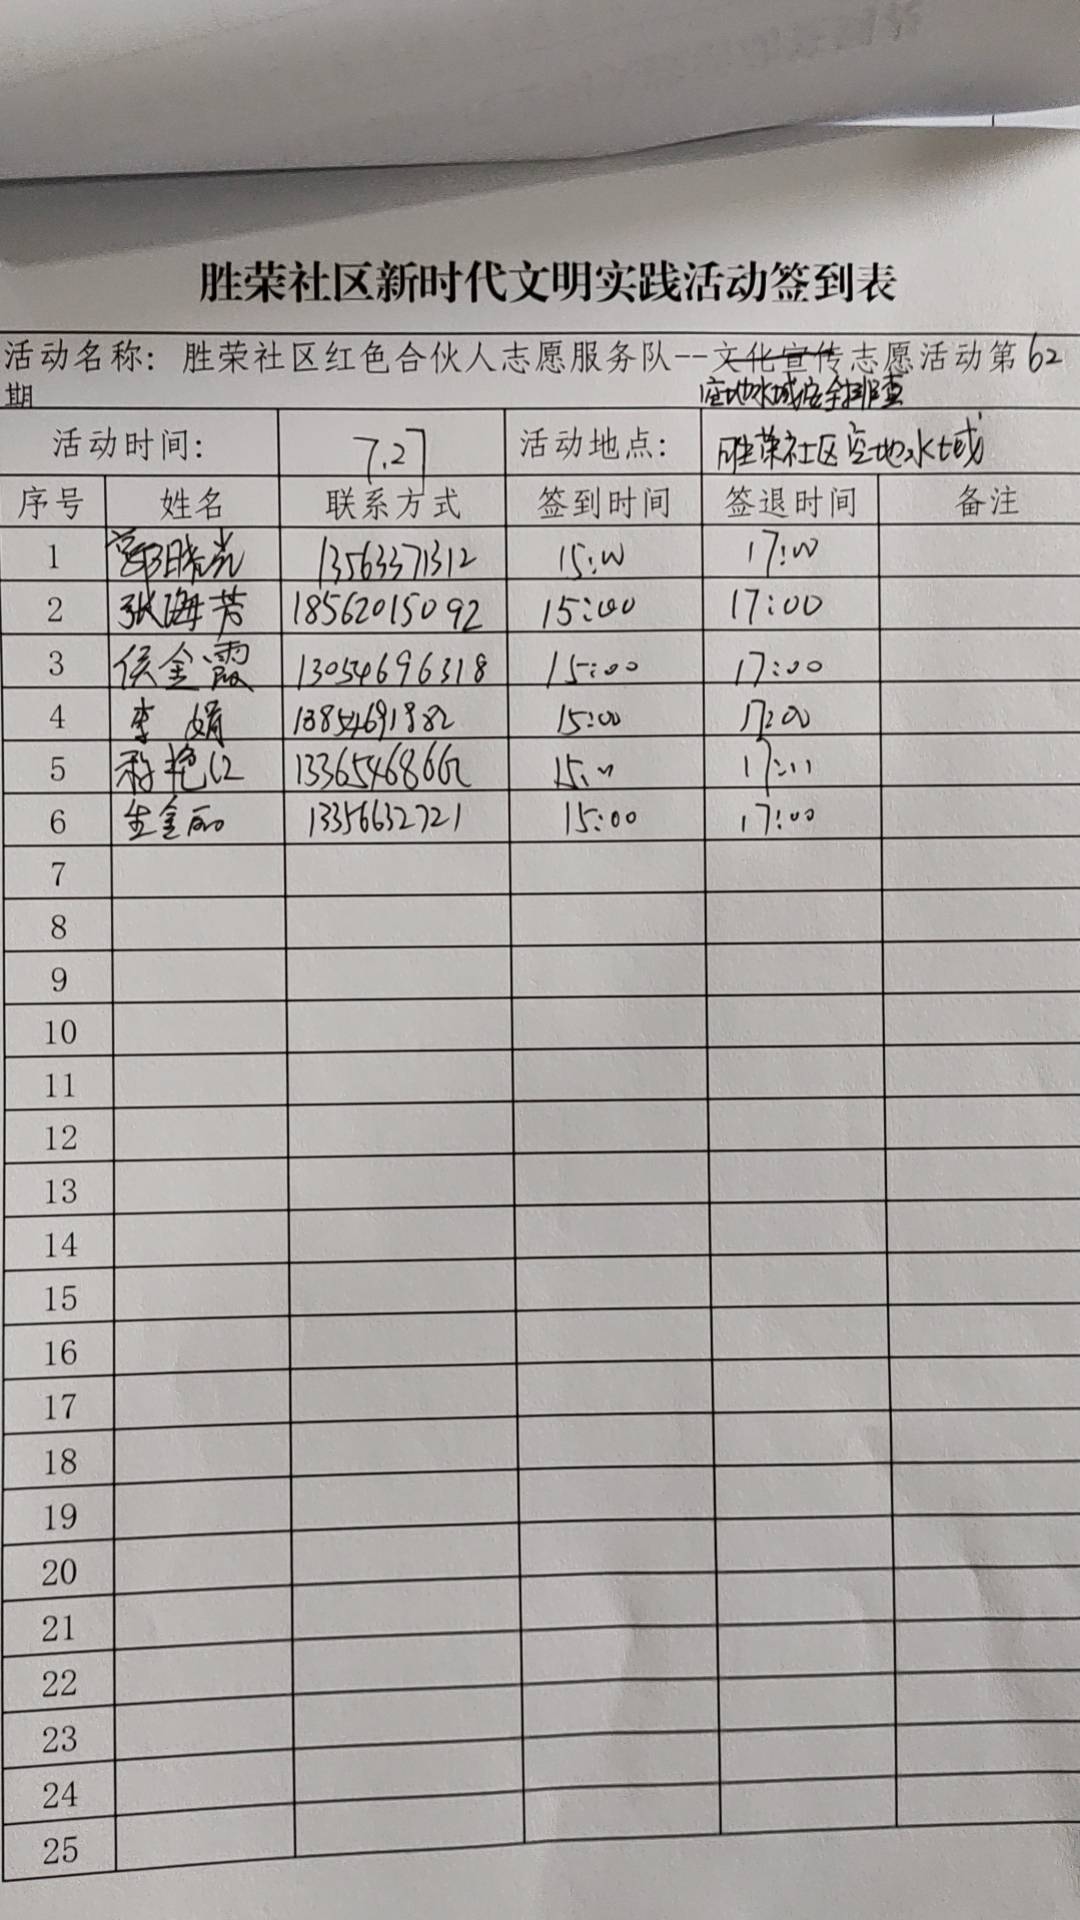 胜荣社区新时代文明实践活动签到表
活动名称：胜荣社区红色合伙人志愿服务队--文化宣传志愿活动第62
期 空地水域安全排查
活动时间： 7.27 活动地点： 胜荣社区空地水域
序号 姓名 联系方式 签到时间 签退时间 备注
1 13563371312 15:00 17:00
2 张海芳 18562015092 15:00 17:00
3 侯金霞 13054696318 15:00 17:00
4 李娟 13854691882 15:00 17:00
5 15:" 17:11
6 生金丽 13356632721 15:00 17:00
7
8
9
10
11
12
13
14
15
16
17
18
19
20
21
22
23
24
25